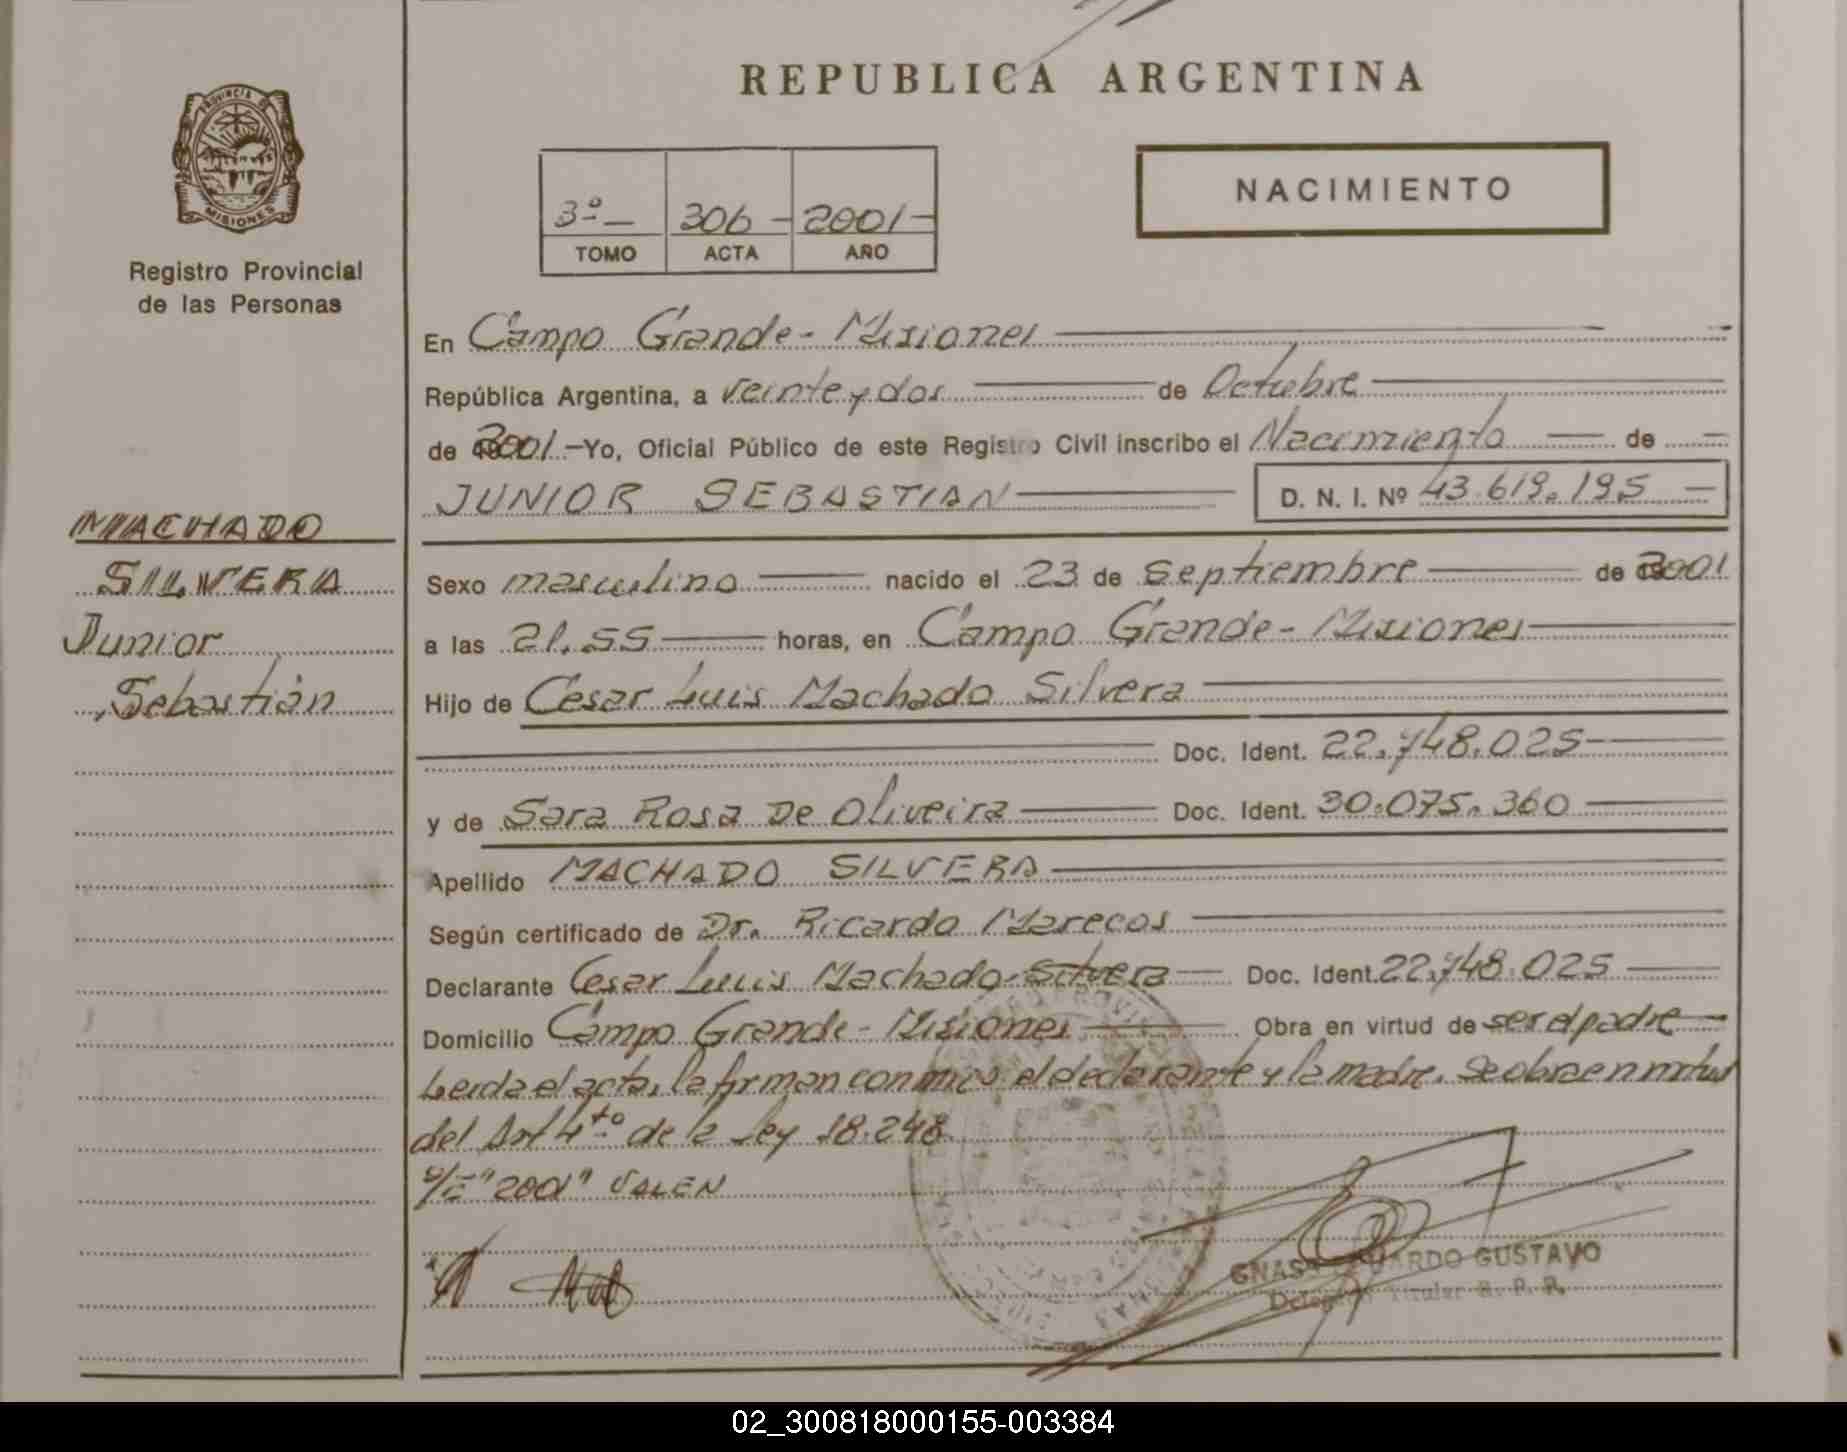 REPUBLICA ARGENTINA
PROVINCIA DE
MISIONES
Registro Provincial
de las Personas
3º 306 - 2001 -
TOMO ACTA AÑO
NACIMIENTO
En Campo Grande - Misiones
República Argentina, a veinte y dos de Octubre
de 2001.-Yo, Oficial Público de este Registro Civil inscribo el Nacimiento de
JUNIOR SEBASTIAN D. N. I. Nº 43.619.195
MACHADO
SILVERA
Junior
Sebastián
Sexo masculino nacido el 23 de Septiembre de 2001
a las 21.55 horas, en Campo Grande - Misiones
Hijo de Cesar Luis Machado Silvera
Doc. Ident. 22.748.025
y de Sara Rosa De Oliveira Doc. Ident. 30.075.360
Apellido MACHADO SILVERA
Según certificado de Dr. Ricardo Marecos
Declarante Cesar Luis Machado Silvera Doc. Ident. 22.748.025
Domicilio Campo Grande - Misiones Obra en virtud de ser el padre
Leida el acta, la firman conmigo el declarante y la madre. Se obra en virtud
del Art 4to de la Ley 18.248
S/E "2001" VALEN
GUSTAVO
Titular R. P. P.
02_300818000155-003384